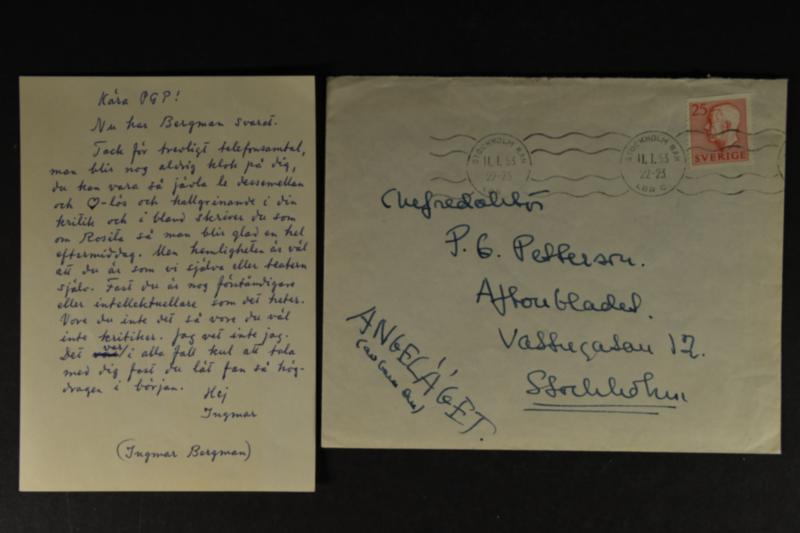 Kära PGP!
Nu har Bergman svarat.
Tack för trevligt telefonsamtal,
man blir nog aldrig klok på dig,
du kan vara så jävla le dessemellan
och ♡-lös och kallgrinande i din
kritik och i bland skriver du som
om Rosita så man blir glad en hel
eftermiddag. Men hemligheten är väl
att du är som vi själva eller teatern
själv. Fast du är nog förståndigare
eller intellektuellare som det heter.
Vore du inte det så vore du väl
inte kritiker. Jag vet inte jag.
Det var i alla fall kul att tala
med dig fast du lät fan så hög-
dragen i början.
Hej
Ingmar
(Ingmar Bergman)
STOCKHOLM BAN
11.1.53
22-23
LBR C
STOCKHOLM BAN
11.1.53
22-23
LBR C
25
SVERIGE
Chefredaktör
P. G. Petterson.
Aftonbladet.
Vattugatan 12.
Stockholm
ANGELÄGET.